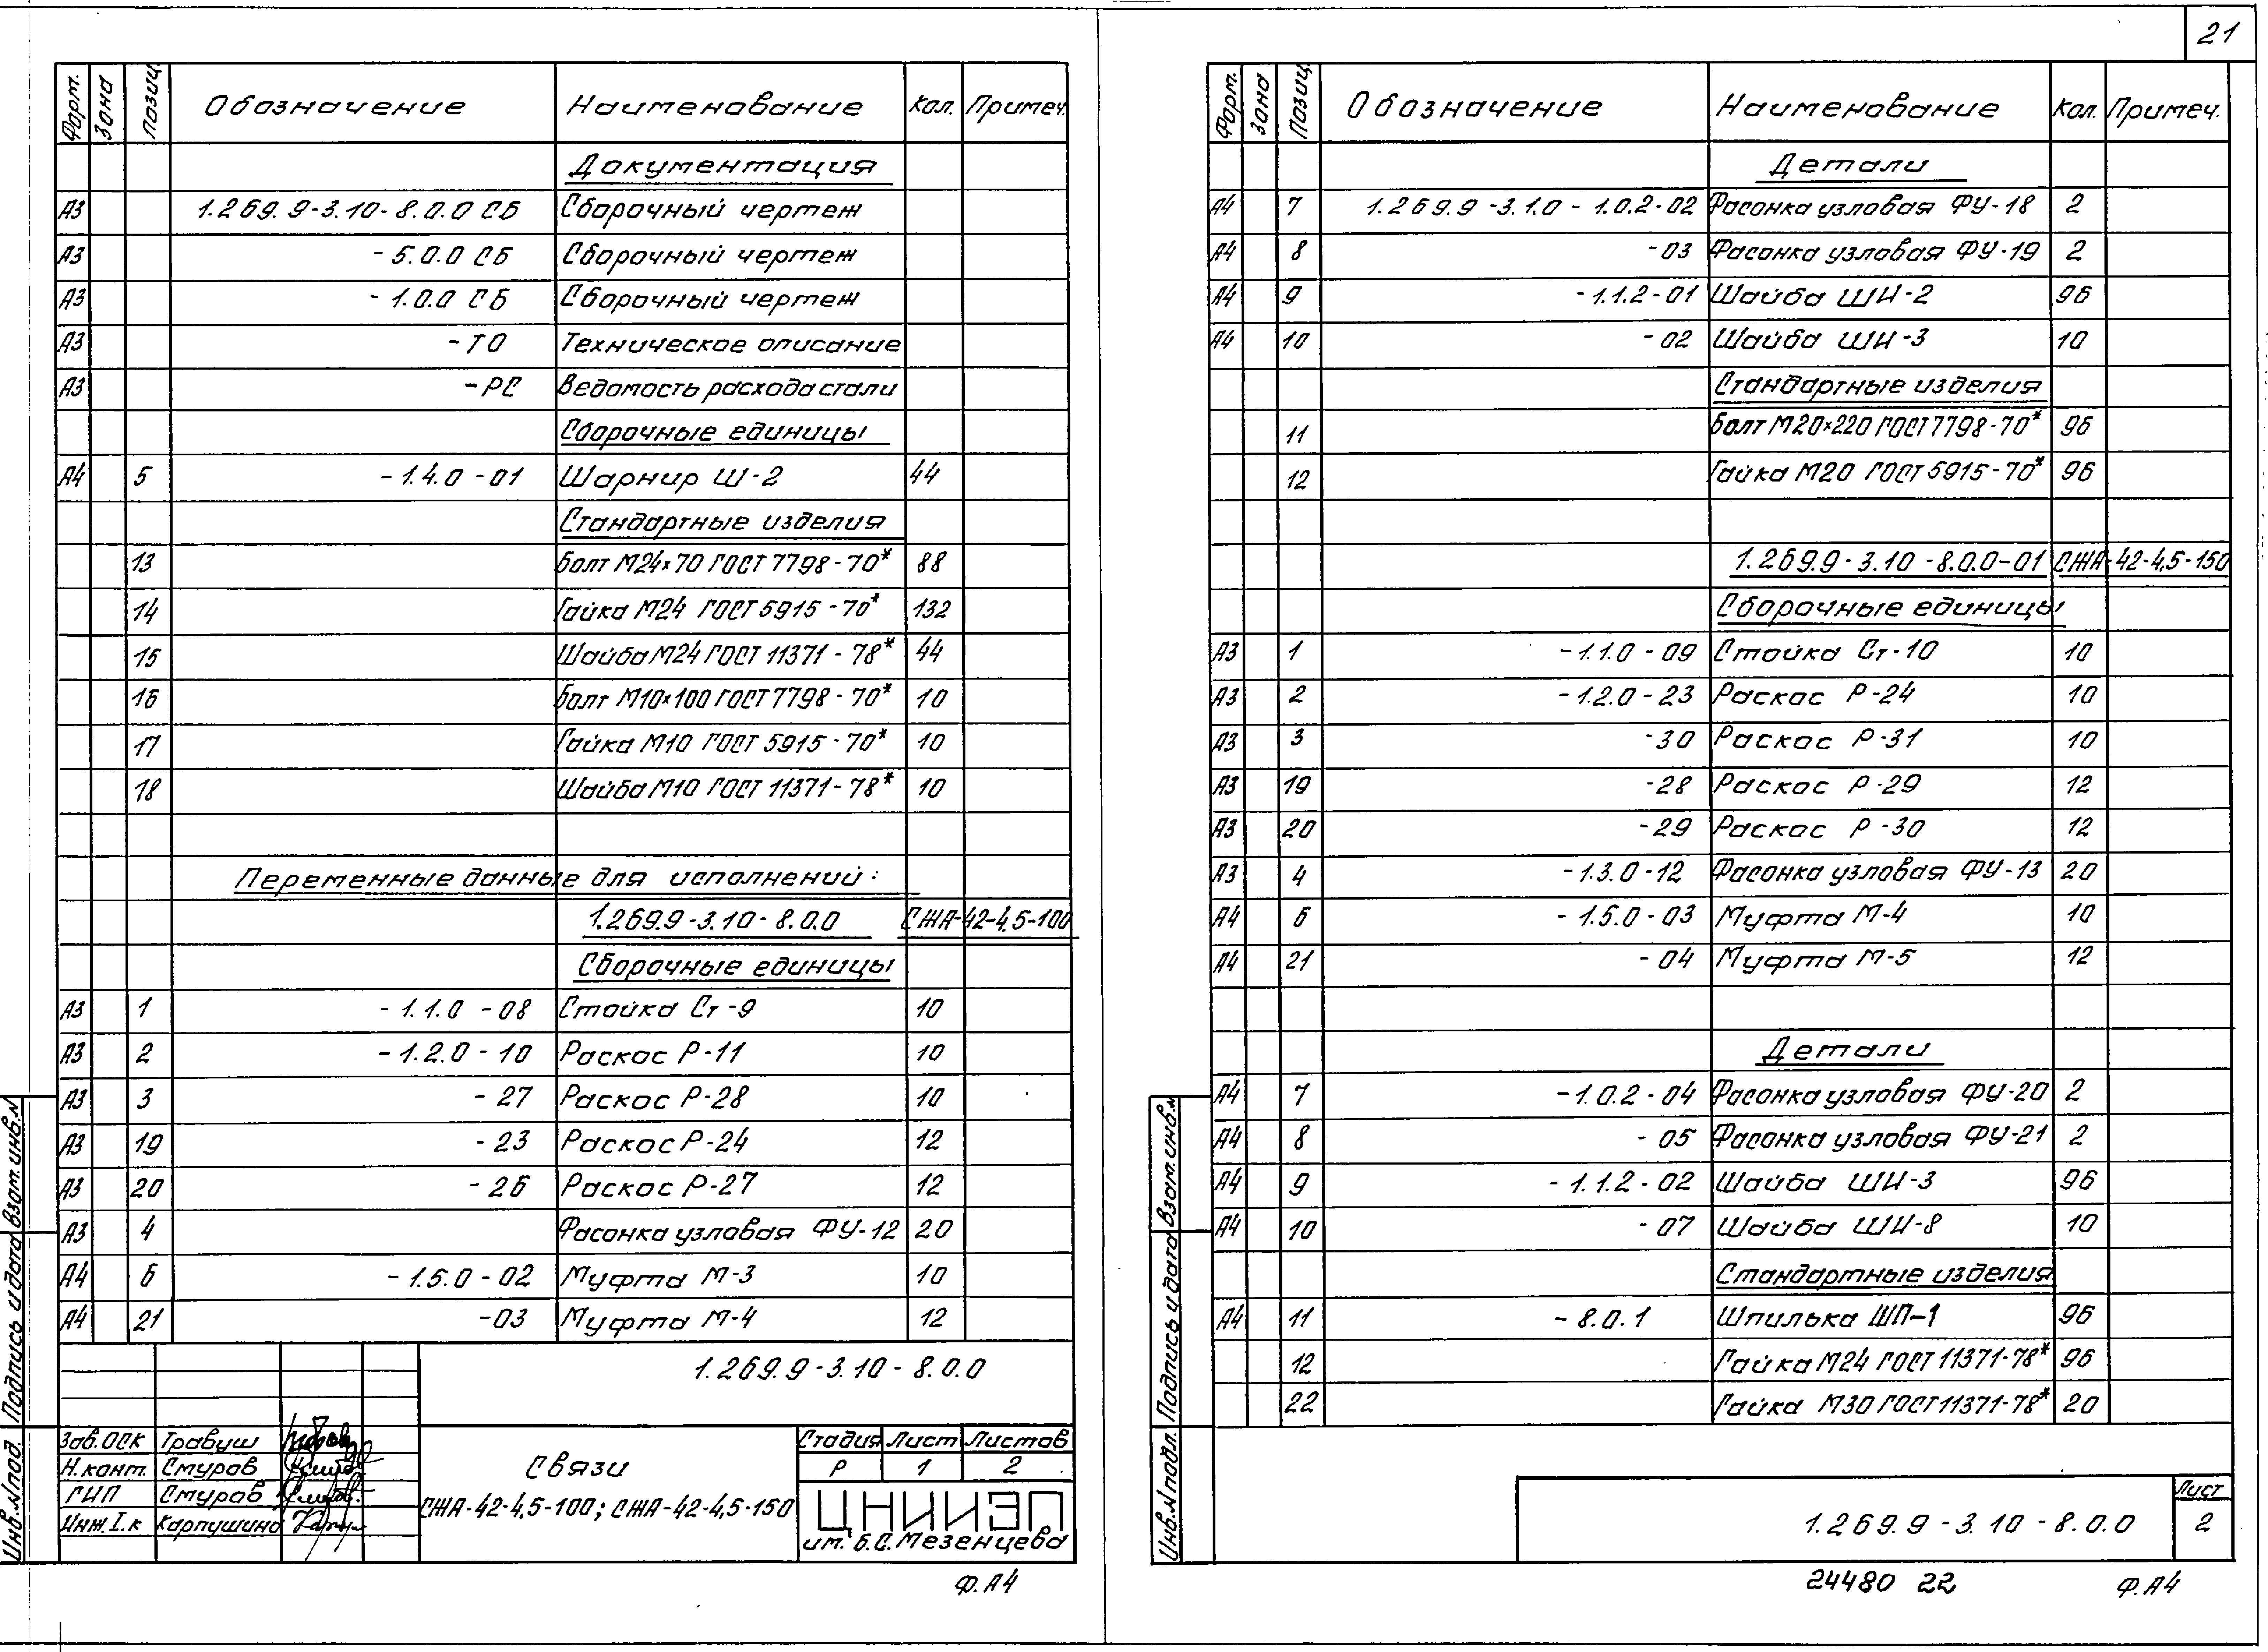 21
Форм. Зона Позиц. Обозначение Наименование Кол. Примеч.
Документация
А3 1.269.9-3.10-8.0.0 СБ Сборочный чертеж
А3 -5.0.0 СБ Сборочный чертеж
А3 -1.0.0 СБ Сборочный чертеж
А3 -ТО Техническое описание
А3 -РС Ведомость расхода стали
Сборочные единицы
А4 5 -1.4.0-01 Шарнир Ш-2 44
Стандартные изделия
13 Болт М24×70 ГОСТ 7798-70* 88
14 Гайка М24 ГОСТ 5915-70* 132
15 Шайба М24 ГОСТ 11371-78* 44
16 Болт М10×100 ГОСТ 7798-70* 10
17 Гайка М10 ГОСТ 5915-70* 10
18 Шайба М10 ГОСТ 11371-78* 10
Переменные данные для исполнений:
1.269.9-3.10-8.0.0 СЖА-42-4,5-100
Сборочные единицы
А3 1 -1.1.0-08 Стойка Ст-9 10
А3 2 -1.2.0-10 Раскос Р-11 10
А3 3 -27 Раскос Р-28 10
А3 19 -23 Раскос Р-24 12
А3 20 -26 Раскос Р-27 12
А3 4 Фасонка узловая ФУ-12 20
А4 6 -1.5.0-02 Муфта М-3 10
А4 21 -03 Муфта М-4 12
1.269.9-3.10-8.0.0
Зав.ОСК Травуш
Н.конт. Смуров
ГИП Смуров
Инж.I.к Карпушина
Связи
СЖА-42-4,5-100; СЖА-42-4,5-150
Стадия Лист Листов
Р 1 2
ЦНИИЭП
им. Б.С.Мезенцева
Инв.N под. Подпись и дата Взам.инв.N
Ф.А4
Форм. Зона Позиц. Обозначение Наименование Кол. Примеч.
Детали
А4 7 1.269.9-3.1.0-1.0.2-02 Фасонка узловая ФУ-18 2
А4 8 -03 Фасонка узловая ФУ-19 2
А4 9 -1.1.2-01 Шайба ШИ-2 96
А4 10 -02 Шайба ШИ-3 10
Стандартные изделия
11 Болт М20×220 ГОСТ 7798-70* 96
12 Гайка М20 ГОСТ 5915-70* 96
1.269.9-3.10-8.0.0-01 СЖА-42-4,5-150
Сборочные единицы
А3 1 -1.1.0-09 Стойка Ст-10 10
А3 2 -1.2.0-23 Раскос Р-24 10
А3 3 -30 Раскос Р-31 10
А3 19 -28 Раскос Р-29 12
А3 20 -29 Раскос Р-30 12
А3 4 -1.3.0-12 Фасонка узловая ФУ-13 20
А4 6 -1.5.0-03 Муфта М-4 10
А4 21 -04 Муфта М-5 12
Детали
А4 7 -1.0.2-04 Фасонка узловая ФУ-20 2
А4 8 -05 Фасонка узловая ФУ-21 2
А4 9 -1.1.2-02 Шайба ШИ-3 96
А4 10 -07 Шайба ШИ-8 10
Стандартные изделия
А4 11 -8.0.1 Шпилька ШП-1 96
12 Гайка М24 ГОСТ 11371-78* 96
22 Гайка М30 ГОСТ 11371-78* 20
Инв.N подл. Подпись и дата Взам.инв.N
1.269.9-3.10-8.0.0
Лист
2
24480 22
Ф.А4